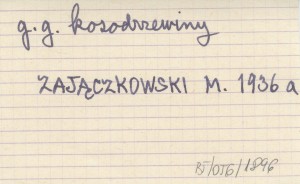 g.g. kosodrzewiny
ZAJĄCZKOWSKI M. 1936 a
BJ/OTG/1896